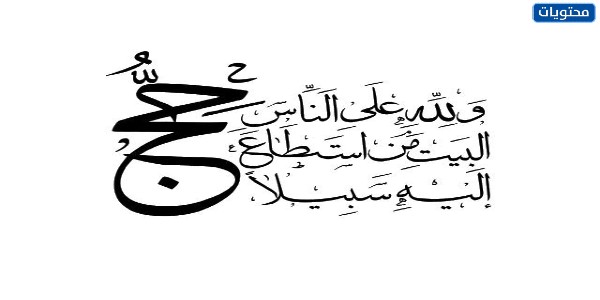 محتويات
وَلِلَّهِ عَلَى النَّاسِ حِجُّ
الْبَيْتِ مَنِ اسْتَطَاعَ
إِلَيْهِ سَبِيلًا